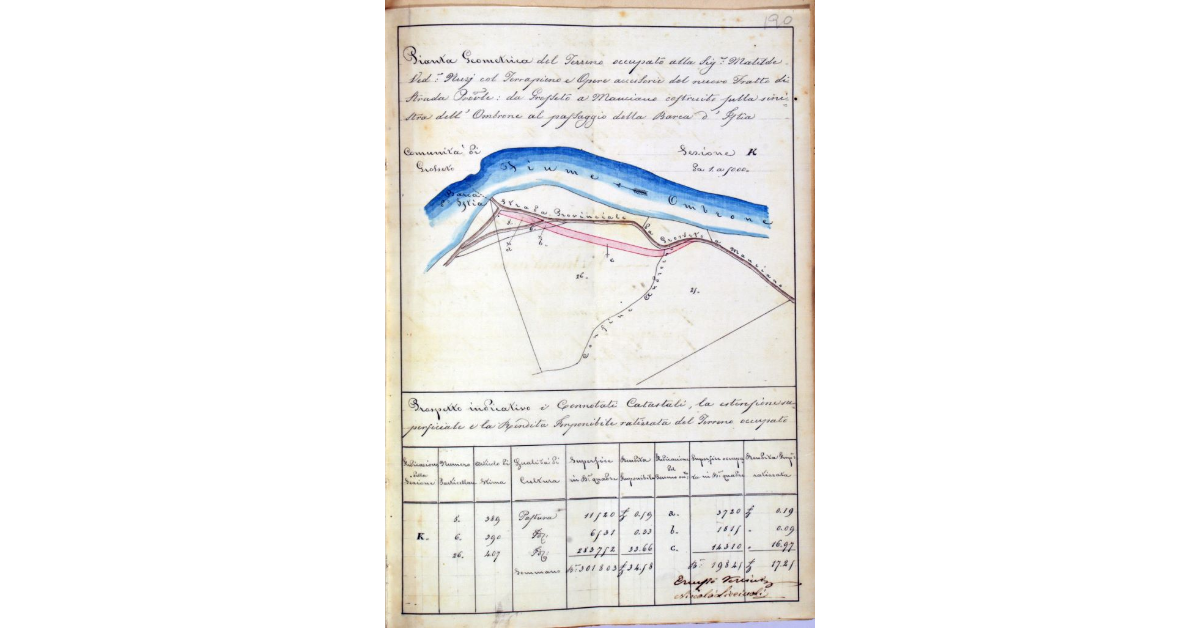 190
Pianta Geometrica del Terreno occupato alla Sig.ra Matilde
Ved.a col Terrapieno e Opere accessorie del nuovo Tratto di
Strada Prov.le: da Grosseto a Manciano costruito sulla sini=
stra dell' Ombrone al passaggio della Barca d' Istia
Comunità di Grosseto
Sezione K
Da 1. a 5000.
Fiume Ombrone
Barca d' Istia
Strada Provinciale da Grosseto a Manciano
5.
6.
a
b.
c
26.
Confine
Prospetto indicativo i Connotati Catastali, la estensione su=
perficiale e la Rendita Imponibile ratizzata del Terreno occupato
Indicazione della Sezione
Numero Particellare
Articolo di Stima
Qualità di Cultura
Superfice in B.a quadre
Rendita Imponibile
Superfice occupa=ta in B.a quadre
Rendita ratizzata
K.
5. 389 Pastura 11520 £ 0.59 a. 3720 £ 0.19
6. 390 6531 0.33 b. 1815 " 0.09
26. 407 283752 33.66 c. 14310 " 16.97
Sommano B.a 301803 £ 34.58 B.a 19845 £ 17.25